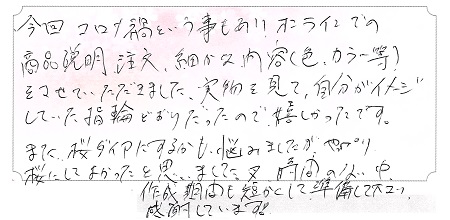 今回 コロナ禍という事もあり、オンラインでの
商品説明、注文、細かな内容(色、カラー等)
をさせていただきました。実物を見て、自分がイメージ
していた指輪どおりだったので嬉しかったです。
また、桜ダイヤにするかも、悩みましたが、やっぱり
桜にしてよかったと思いました。又 時間のない中、
作成期間も短かくして準備して下さり
感謝しています。